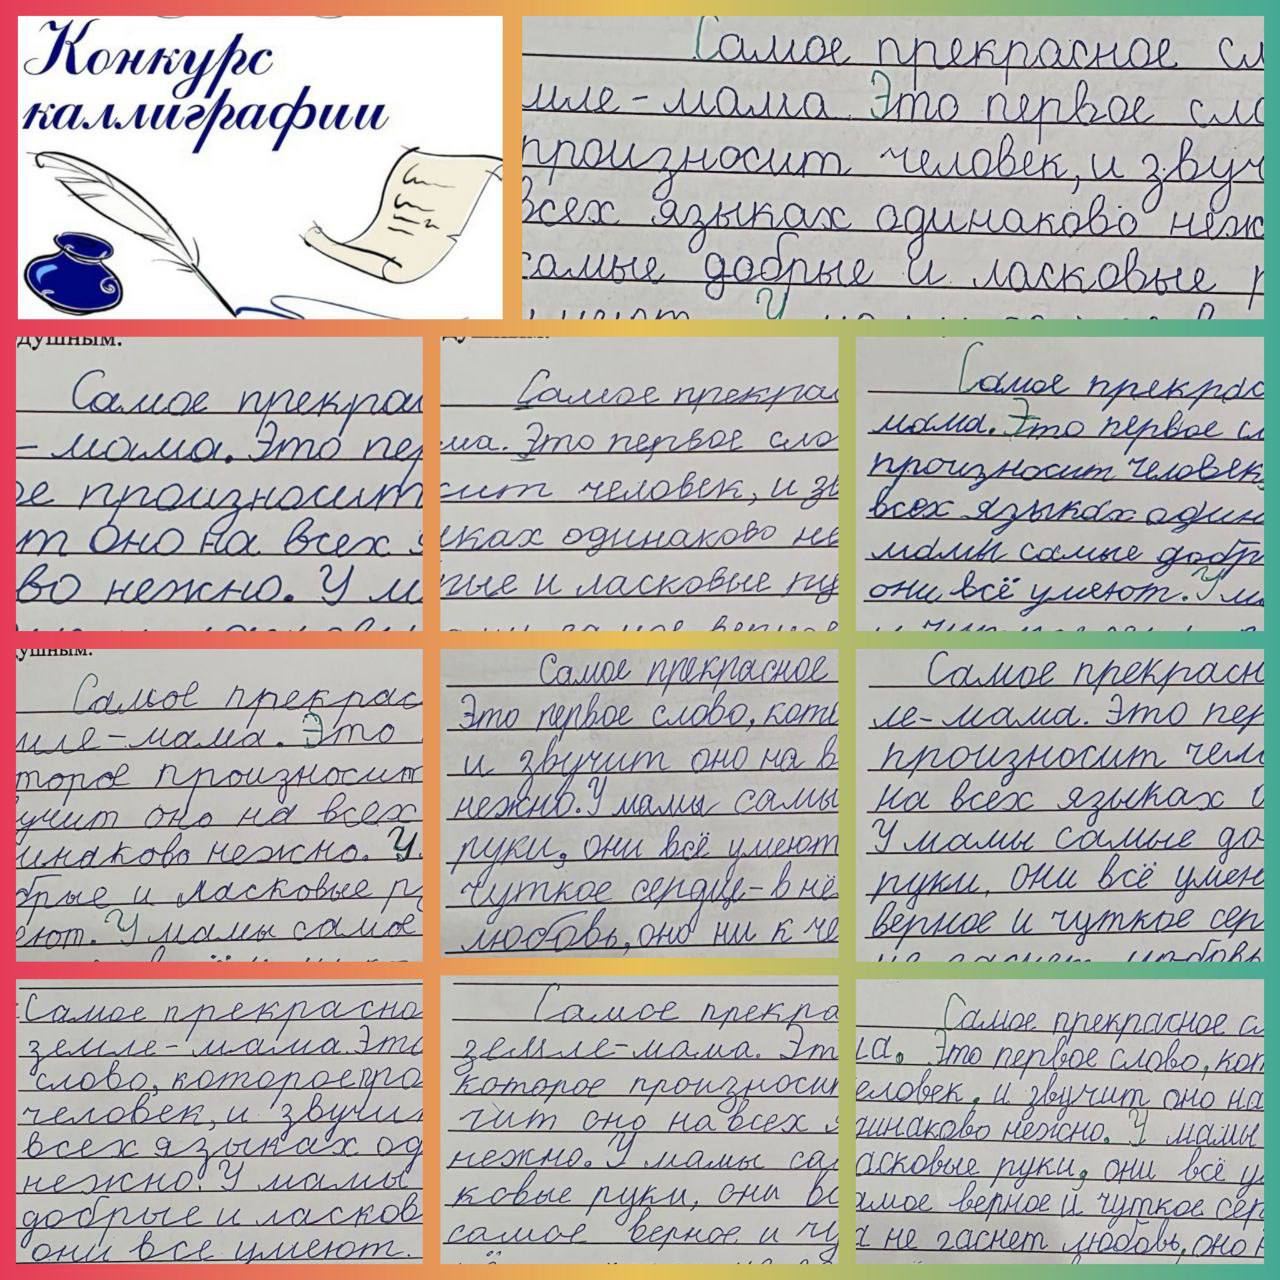 Конкурс
каллиграфии
Самое прекрасное сл
мле-мама. Это первое сло
произносит человек, и звуч
всех языках одинаково неж
самые добрые и ласковые р
умеют. У
душным.
Самое прекрас
- мама. Это пер
ое произносит
т оно на всех я
во нежно. У м
душным.
Самое прекрас
ма. Это первое сло
сит человек, и зв
ыках одинаково не
рые и ласковые ру
мы самое верное
Самое прекрас
мама. Это первое сл
произносит человек,
всех языках один
мамы самые добр
они всё умеют. У ма
и чуткое
душным.
Самое прекрас
мле-мама. Это
торое произносит
учит оно на всех
инаково нежно. У
брые и ласковые ру
еют. У мамы самое
Самое прекрасное
Это первое слово, кото
и звучит оно на в
нежно. У мамы самы
руки, они всё умеют
чуткое сердце-в нё
любовь, оно ни к че
Самое прекрасн
ле-мама. Это пер
произносит чело
на всех языках о
У мамы самые до-
руки, они всё умею
верное и чуткое сер
не гаснет любовь
Самое прекрасно
земле-мама. Это
слово, которое про
человек, и звучи
всех языках од
нежно. У мамы
добрые и ласков
они все умеют.
Самое прекра
земле-мама. Эт
которое произносит
чит оно на всех я
нежно. У мамы сам
ковые руки, они вс
самое верное и чу
Самое прекрасное с
ма. Это первое слово, кот
человек, и звучит оно на
динаково нежно. У мамы
ласковые руки, они всё у
амое верное и чуткое сер
м не гаснет любовь, оно н